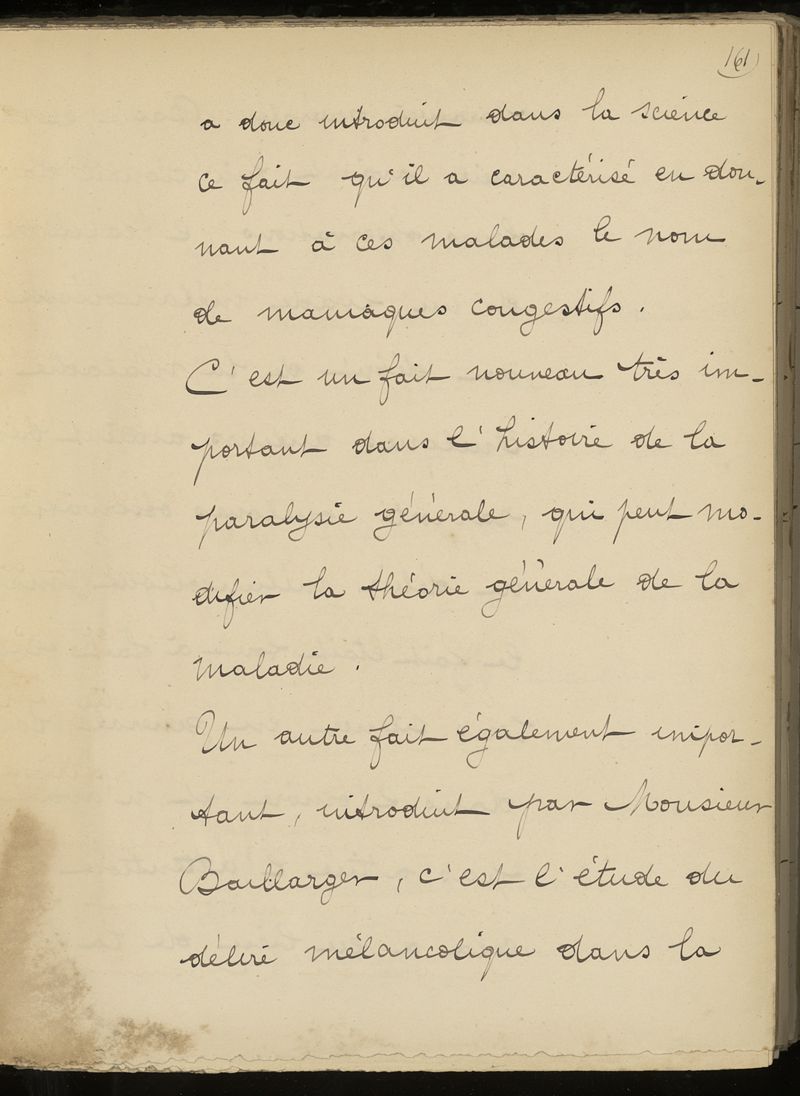 161
a donc introduit dans la science
ce fait qu'il a caractérisé en don-
nant à ces malades le nom
de maniaques congestifs.
C'est un fait nouveau très im-
portant dans l'histoire de la
paralysie générale, qui peut mo-
difier la théorie générale de la
maladie.
Un autre fait également impor-
tant, introduit par Monsieur
Baillarger, c'est l'étude du
délire mélancolique dans la